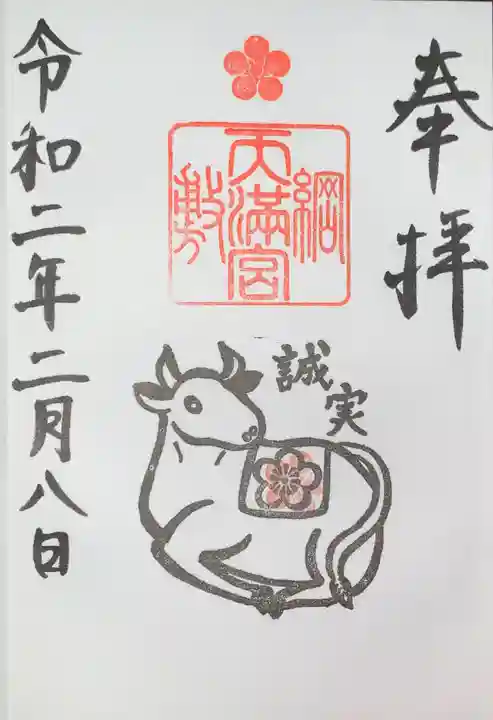 奉拝
綱
天満宮
敷
誠実
令和二年二月八日